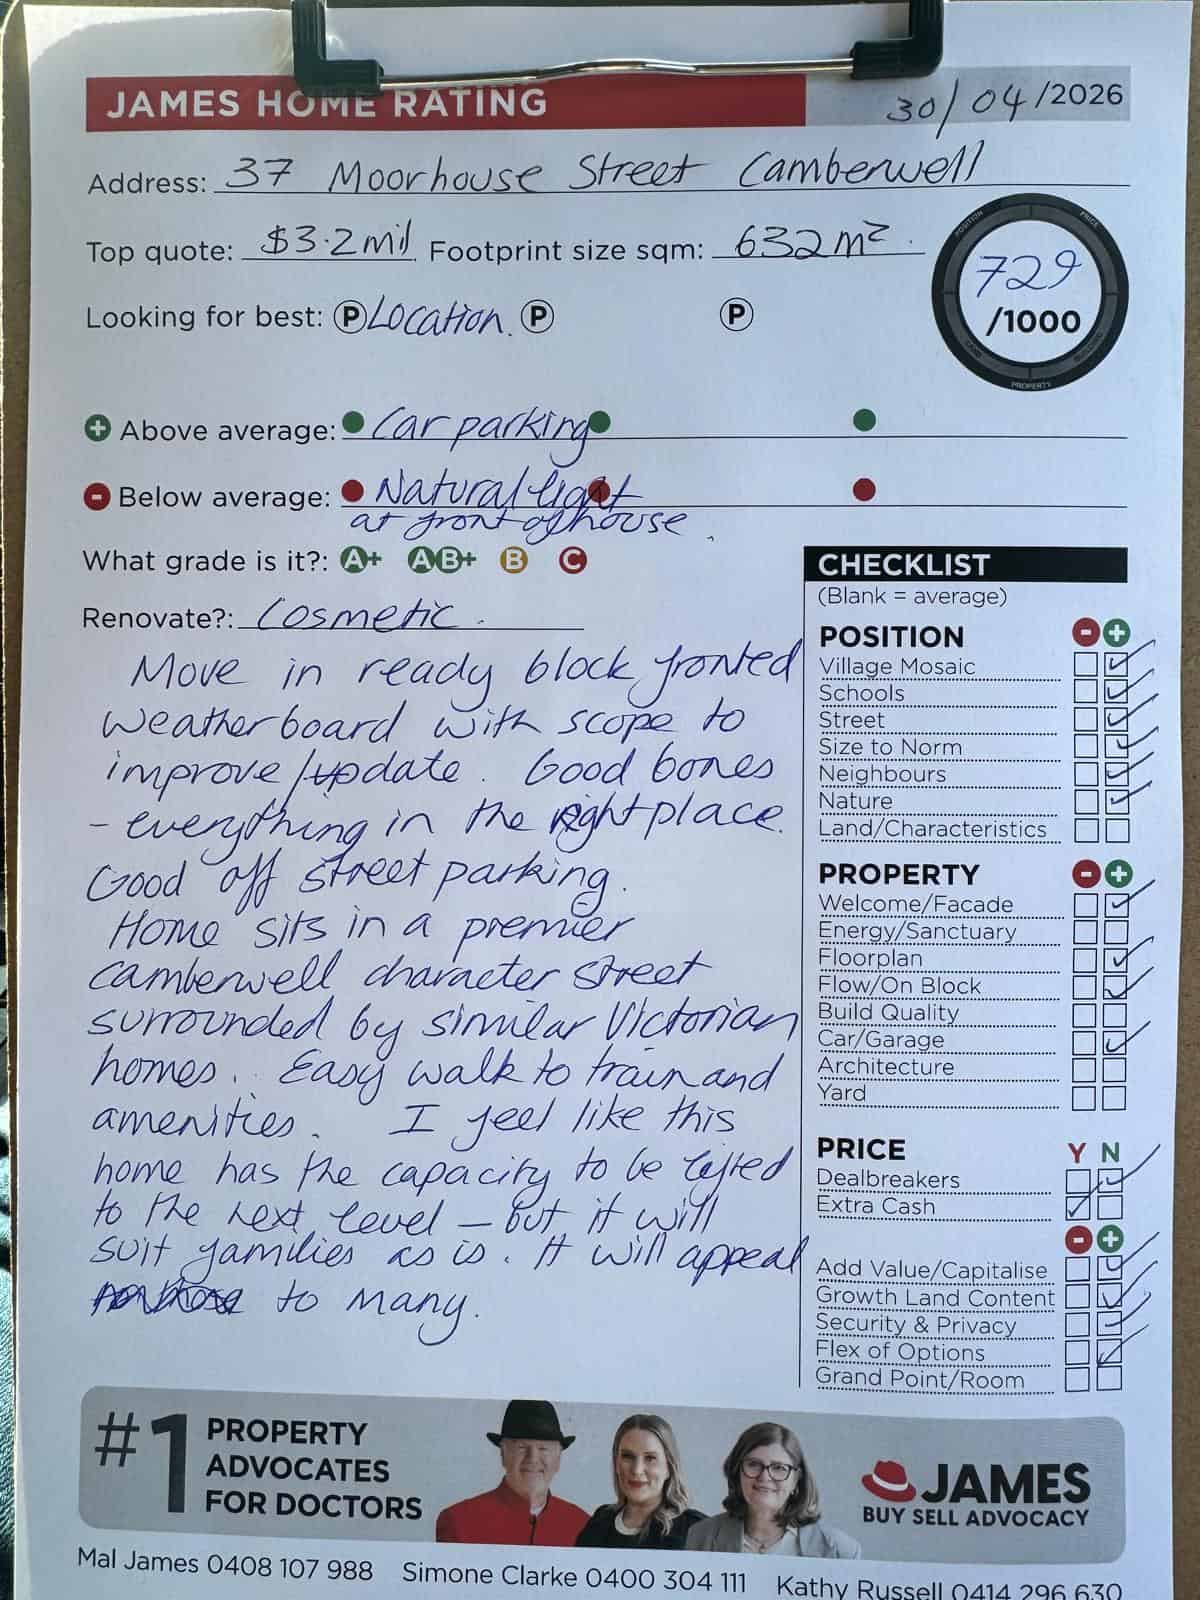 JAMES HOME RATING
30/04/2026
Address: 37 Moorhouse Street Camberwell
Top quote: $3.2mil Footprint size sqm: 632m².
POSITION PRICE
729
/1000
PROPERTY
Looking for best: P Location. P P
+ Above average: Car parking
- Below average: Natural light
at front of house.
What grade is it?: A+ A B+ B C
Renovate?: Cosmetic.
Move in ready block fronted
weatherboard with scope to
improve/update. Good bones
- everything in the right place.
Good off street parking.
Home sits in a premier
Camberwell character street
surrounded by similar Victorian
homes. Easy walk to train and
amenities. I feel like this
home has the capacity to be lifted
to the next level - but it will
suit families as is. It will appeal
to many.
CHECKLIST
(Blank = average)
POSITION - +
Village Mosaic
Schools
Street
Size to Norm
Neighbours
Nature
Land/Characteristics
PROPERTY - +
Welcome/Facade
Energy/Sanctuary
Floorplan
Flow/On Block
Build Quality
Car/Garage
Architecture
Yard
PRICE Y N
Dealbreakers
Extra Cash
- +
Add Value/Capitalise
Growth Land Content
Security & Privacy
Flex of Options
Grand Point/Room
#1 PROPERTY
ADVOCATES
FOR DOCTORS
JAMES
BUY SELL ADVOCACY
Mal James 0408 107 988 Simone Clarke 0400 304 111 Kathy Russell 0414 296 630